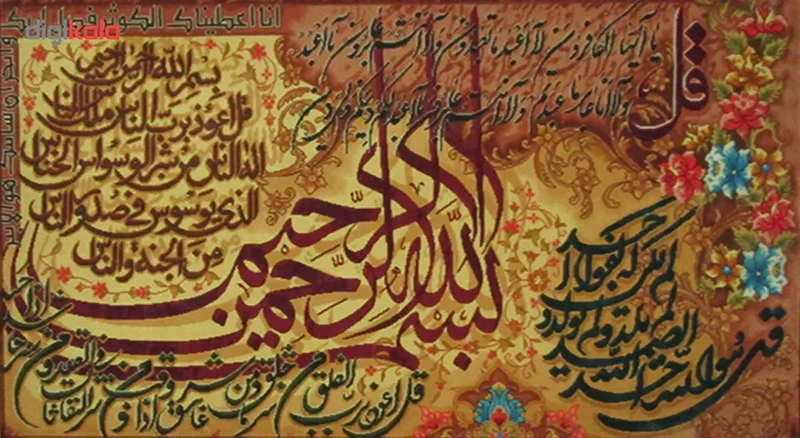 انا اعطیناک الکوثر فصل لربک
وانحر ان شانئک هو الابتر
قل
یا ایها الکافرون لا اعبد ما تعبدون ولا انتم عابدون ما اعبد
ولا انا عابد ما عبدتم ولا انتم عابدون ما اعبد لکم دینکم ولی دین
بسم الله الرحمن الرحیم
قل اعوذ برب الناس ملک الناس
اله الناس من شر الوسواس الخناس
الذی یوسوس فی صدور الناس
من الجنة والناس
بسم الله الرحمن الرحیم
قل هو الله احد
الله الصمد
لم یلد ولم یولد
ولم یکن له کفوا احد
قل اعوذ برب الفلق من شر ما خلق ومن شر غاسق اذا وقب ومن شر النفاثات فی العقد ومن شر حاسد اذا حسد
digikala